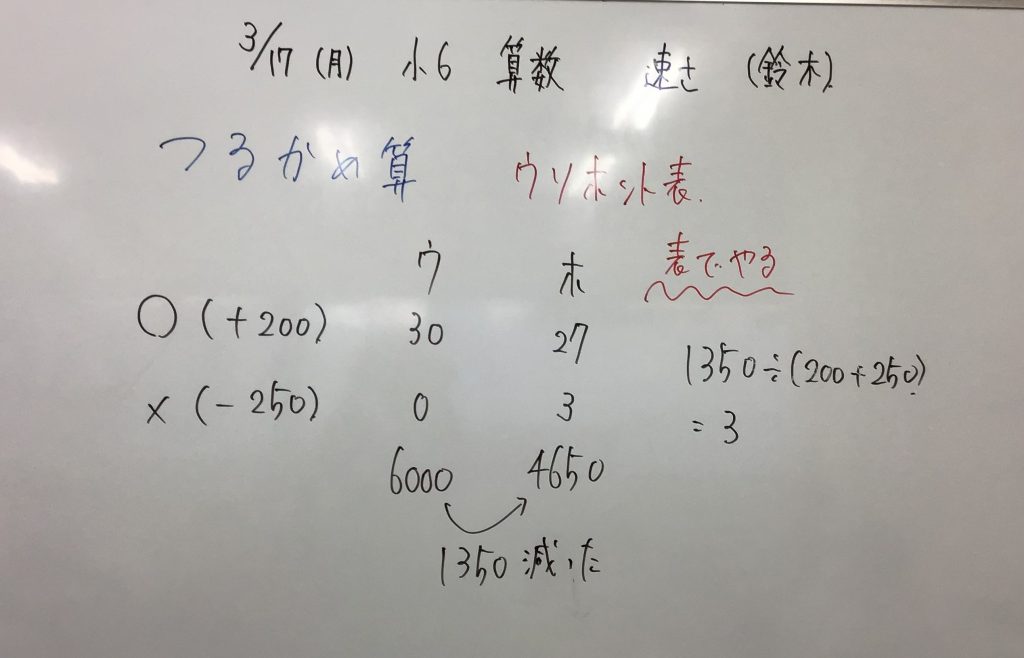 3/17 (月) 小6 算数 速さ (鈴木)
つるかめ算 ウソホント表.
表でやる
ウ ホ
○ (+200) 30 27
× (-250) 0 3
6000 4650
1350減った
1350÷(200+250)
=3